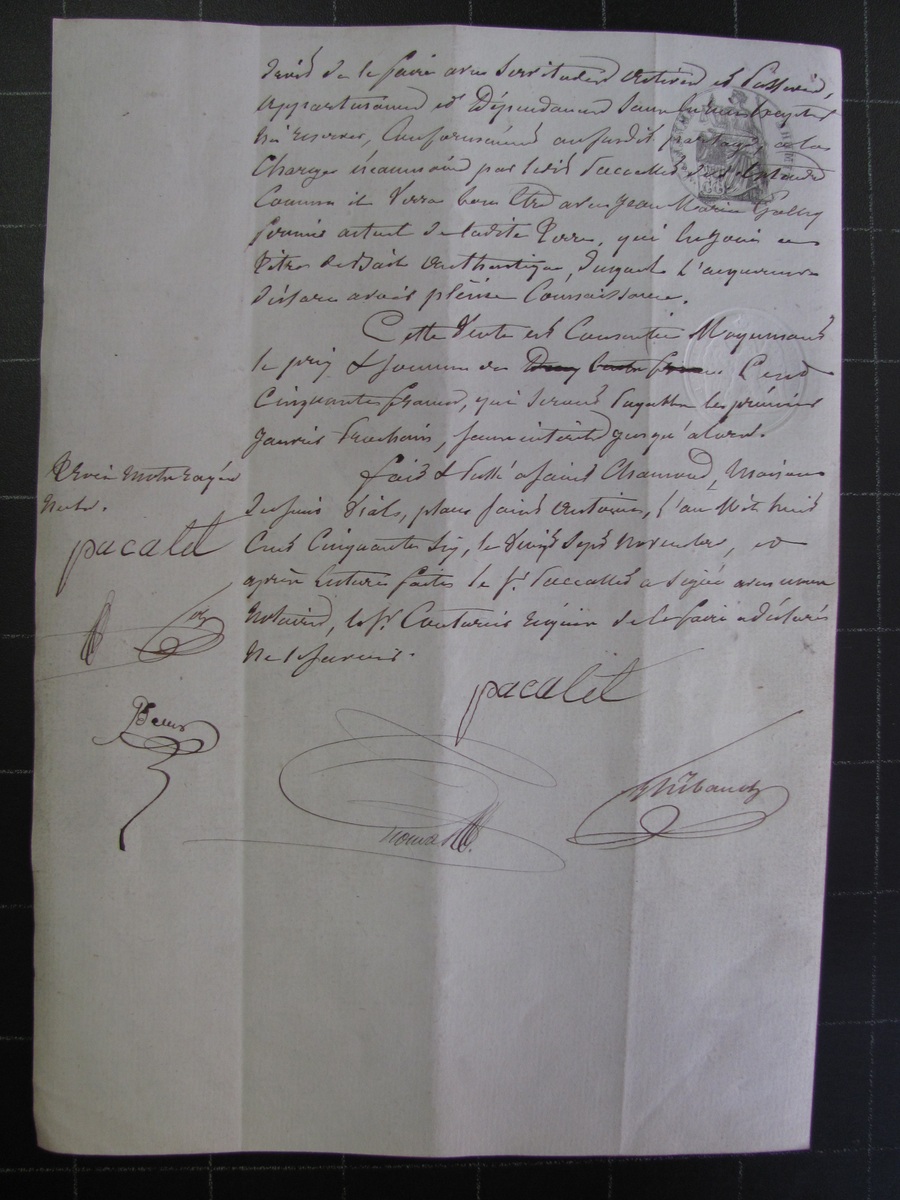 droit de le faire avec servitudes actives et passives,
appartenances et dépendances sans en rien excepter
ni réserver, conformément au susdit partage, à la
charge néanmoins par ledit Paccallet de s'entendre
comme il verra bon être avec Jean Marie
fermier actuel de ladite terre, qui en jouit en
titre de bail authentique, duquel l'acquéreur
déclare avoir pleine connaissance.
Cette vente est consentie moyennant
le prix & somme de cent
cinquante francs, qui seront payables le premier
janvier prochain, sans intérêts jusqu'alors.
fait & passé à Saint Chamond, maison
place Saint Antoine, l'an mil huit
cent cinquante six, le vingt sept novembre, et
après lecture faite le Sr. Paccallet a signé avec nous
notaires, le Sr. Couturier requis de le faire a déclaré
ne le savoir.
pacalet
Thibaud
Trois mots rayés
nuls.
pacalet